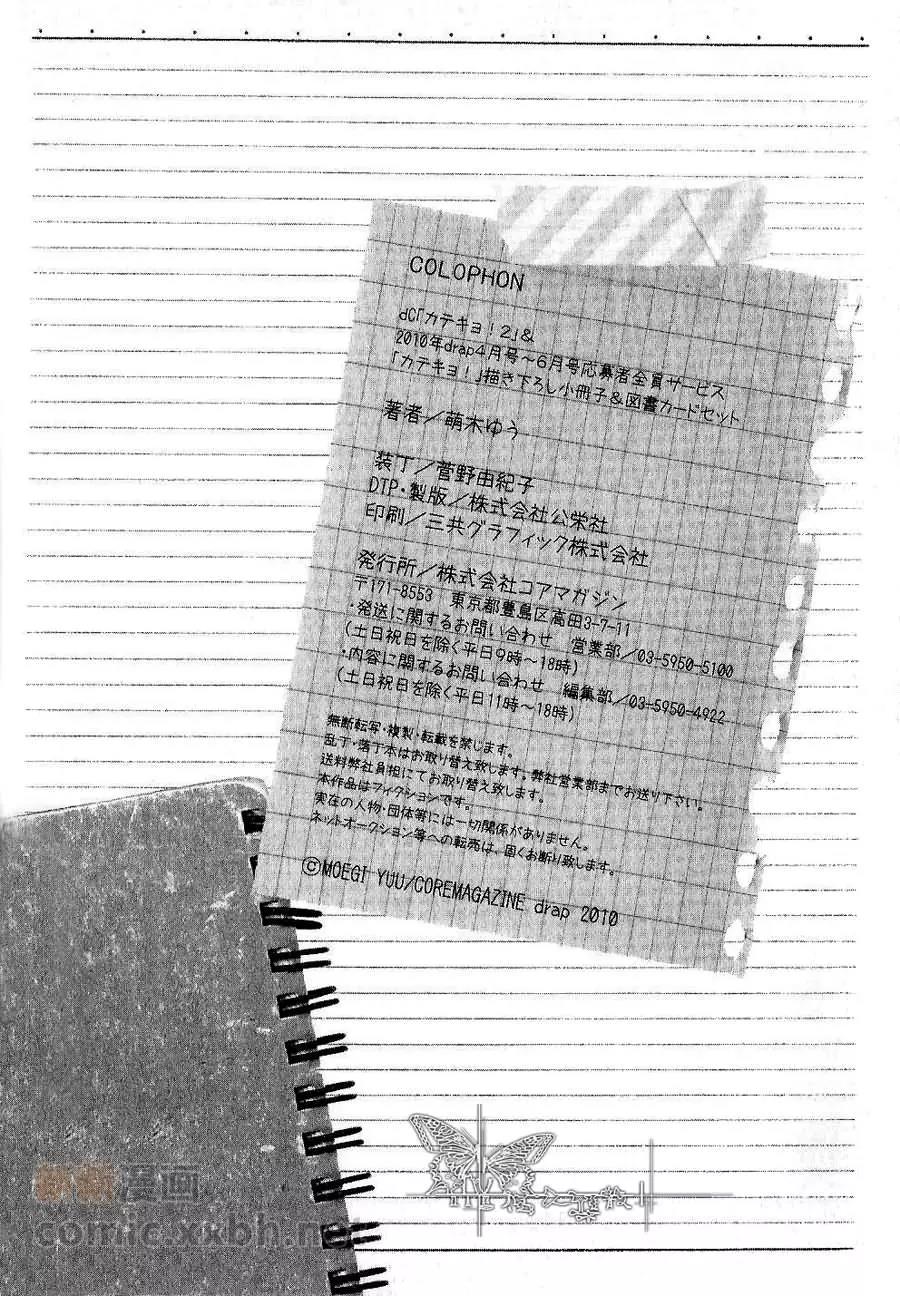 COLOPHON
dC「カテキョ！２」&
2010年drap４月号～６月号応募者全員サービス
「カテキョ！」描き下ろし小冊子＆図書カードセット
著者／萌木ゆう
装丁／菅野由紀子
DTP・製版／株式会社公栄社
印刷／三共グラフィック株式会社
発行所／株式会社コアマガジン
〒171-8553　東京都豊島区高田3-7-11
・発送に関するお問い合わせ　営業部／03-5950-5100
（土日祝日を除く平日9時～18時）
・内容に関するお問い合わせ　編集部／03-5950-4922
（土日祝日を除く平日11時～18時）
無断転写・複製・転載を禁じます。
乱丁・落丁本はお取り替え致します。弊社営業部までお送り下さい。
送料弊社負担にてお取り替え致します。
本作品はフィクションです。
実在の人物・団体等には一切関係がありません。
ネットオークション等への転売は、固くお断り致します。
©MOEGI YUU/COREMAGAZINE drap 2010
漫画
comic.xxbh.net